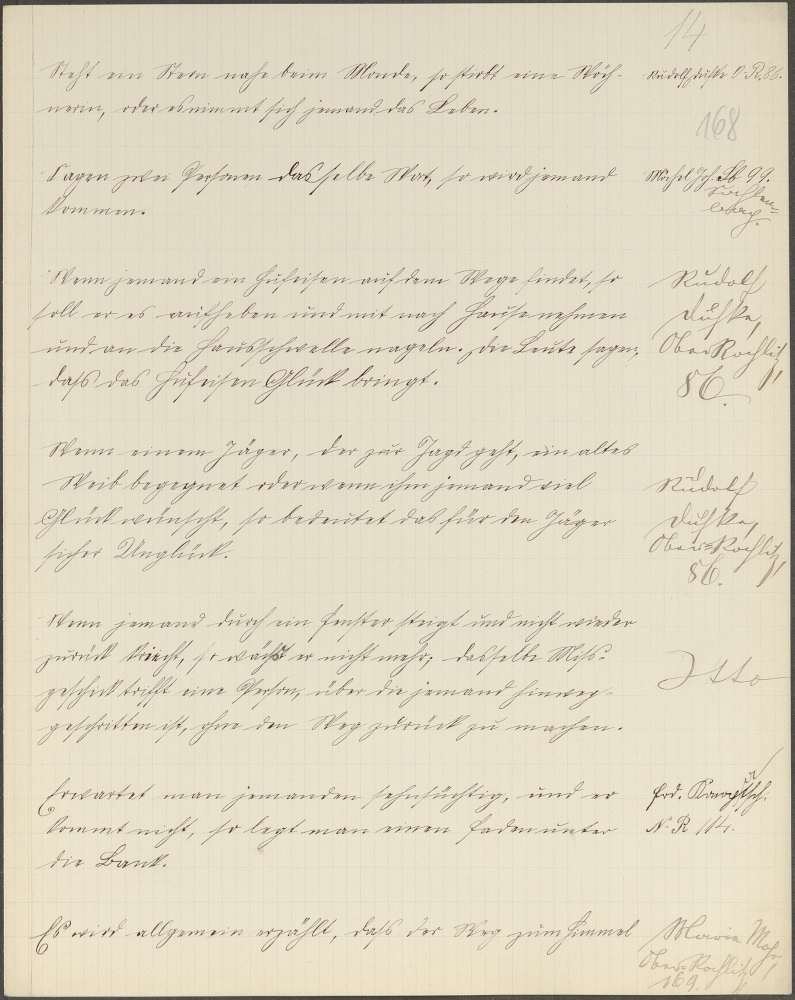 14
Steht ein Stern nahe beim Monde, so stirbt eine Wöch-
Rudolf Duschke O. R. 86.
nerin, oder es nimmt sich jemand das Leben.
168
Sagen zwei Personen dasselbe Wort, so wird jemand
Michel Joh. 99.
kommen.
Wenn jemand ein Hufeisen auf dem Wege findet, so
soll er es aufheben und mit nach Hause nehmen
und an die Hausschwelle nageln. Die Leute sagen,
dass das Hufeisen Glück bringt.
Rudolf
Duschke,
Ober Rochlitz
86.
Wenn einem Jäger, der zur Jagd geht, ein altes
Weib begegnet oder wenn ihm jemand viel
Glück wünscht, so bedeutet das für den Jäger
sicher Unglück.
Rudolf
Duschke,
Ober=Rochlitz
86.
Wenn jemand durch ein Fenster steigt und nicht wieder
zurück kriecht, so wächst er nicht mehr; dasselbe Miss-
geschick trifft eine Person, über die jemand hinweg-
geschritten ist, ohne den Weg zurück zu machen.
Otto
Erwartet man jemanden sehnsüchtig, und er
kommt nicht, so legt man einen Faden unter
die Bank.
N. R 114.
Es wird allgemein erzählt, dass der Weg zum Himmel
Marie
Ober=Rochlitz
169.